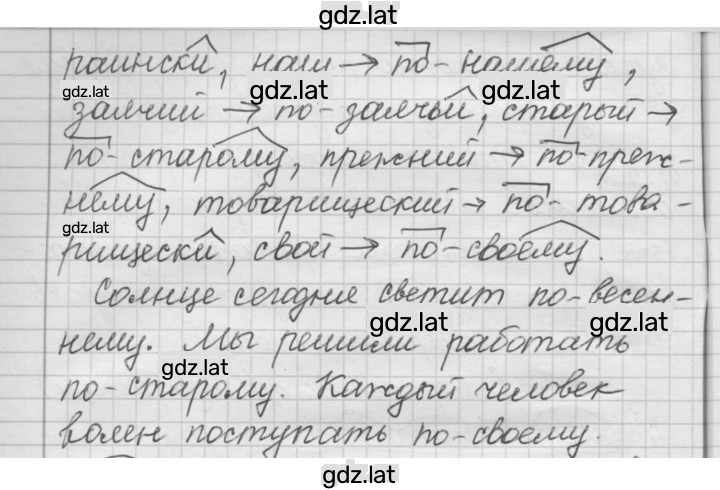 gdz.lat
раински, наш → по-нашему,
gdz.lat gdz.lat gdz.lat
заячий → по-заячьи, старый →
по-старому, прежний → по-преж-
нему, товарищеский → по-това-
gdz.lat
рищески, свой → по-своему.
Солнце сегодня светит по-весен-
gdz.lat gdz.lat
нему. Мы решили работать
gdz.lat
по-старому. Каждый человек
волен поступать по-своему.
gdz.lat